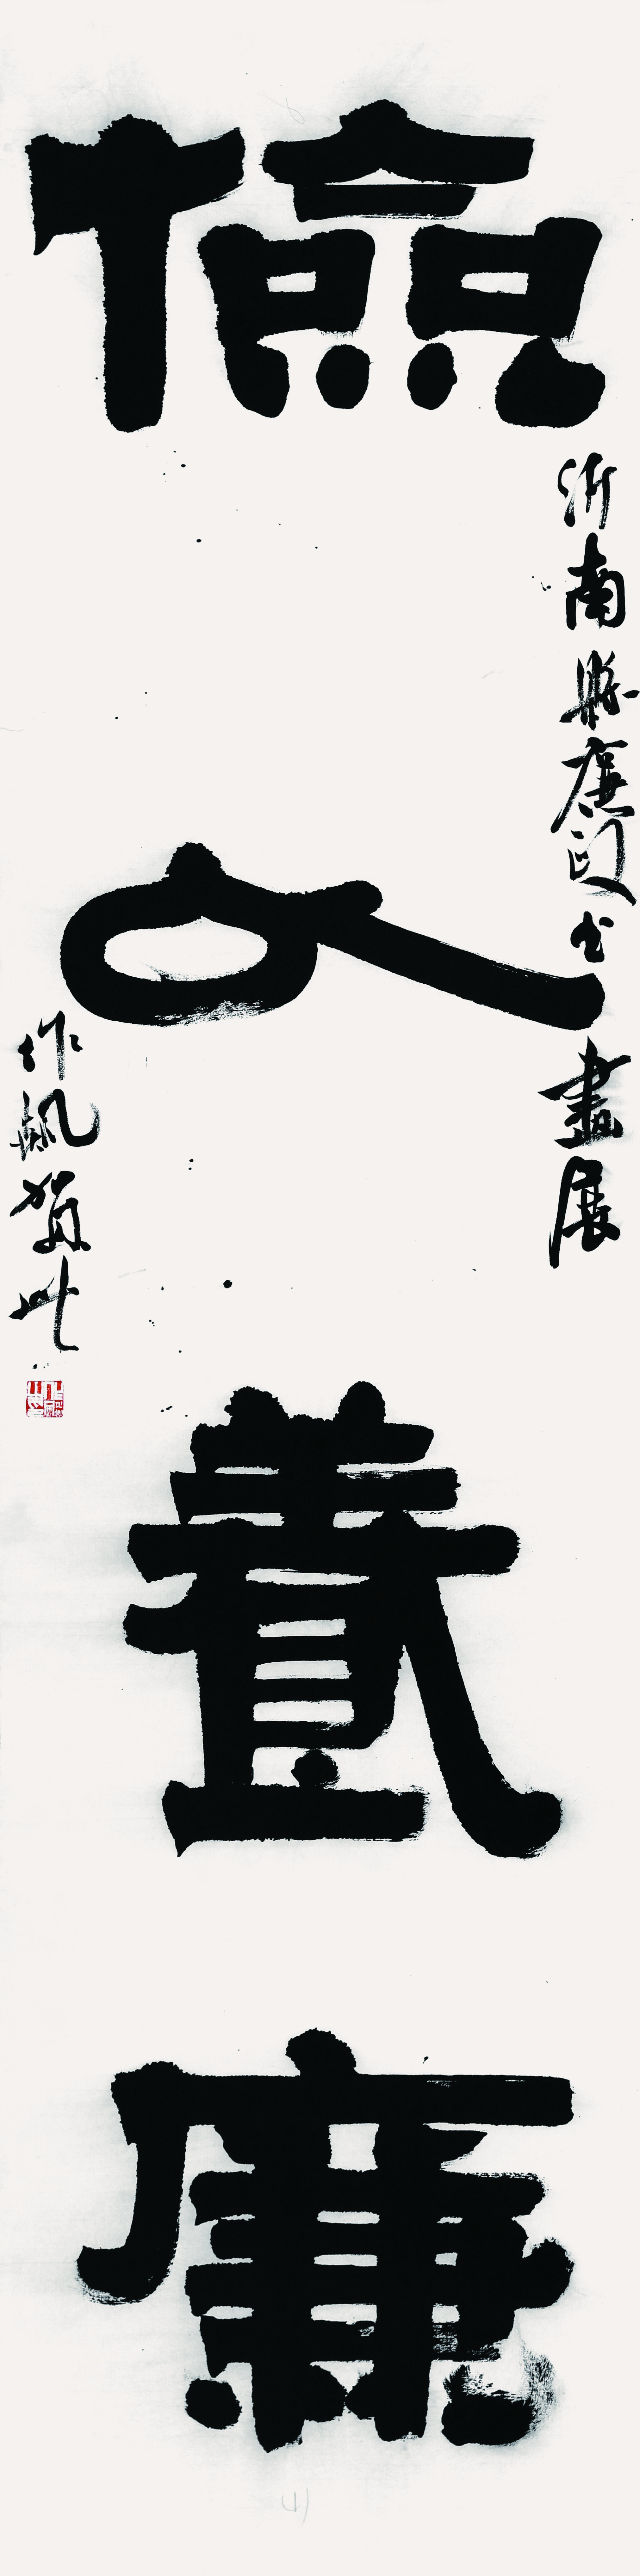 儉以養廉
沂南縣廉政书畫展
作 賀此